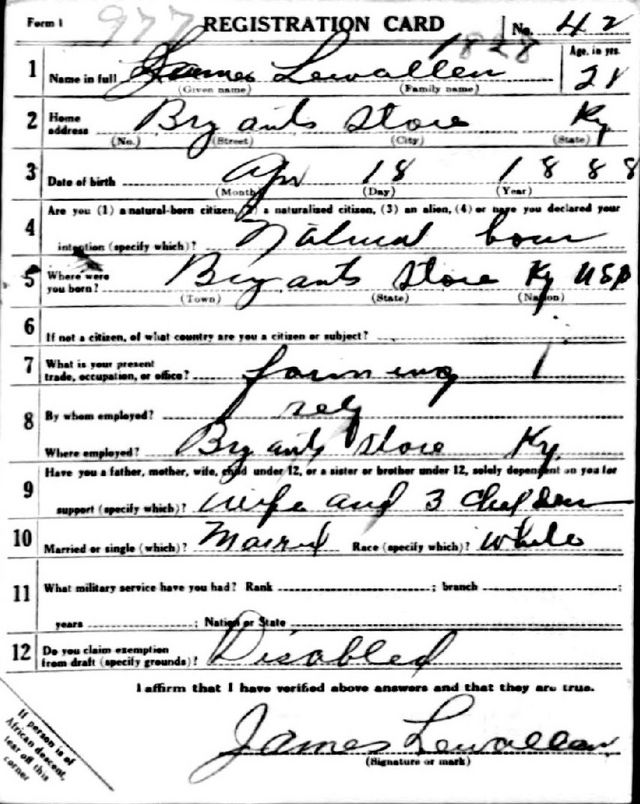 Form 1 977 REGISTRATION CARD No. 42
1828 Age, in yrs.
1 Name in full James Lewallen
(Given name) (Family name)
2 Home address Bryants Store Ky
(No.) (Street) (City) (State)
3 Date of birth Apr 18 1888
(Month) (Day) (Year)
4 Are you (1) a natural-born citizen, (2) a naturalized citizen, (3) an alien, (4) or have you declared your
intention (specify which)? Natural born
5 Where were you born? Bryants Store Ky USA
(Town) (State) (Nation)
6 If not a citizen, of what country are you a citizen or subject?
7 What is your present
trade, occupation, or office? farming
8 By whom employed? self
Where employed? Bryants Store Ky.
9 Have you a father, mother, wife, child under 12, or a sister or brother under 12, solely dependent on you for
support (specify which)? Wife and 3
10 Married or single (which)? Married Race (specify which)? White
11 What military service have you had? Rank ; branch ;
years ; Nation or State
12 Do you claim exemption
from draft (specify grounds)? Disabled
I affirm that I have verified above answers and that they are true.
James Lewallen
(Signature or mark)
If person is of
African descent,
tear off this
corner